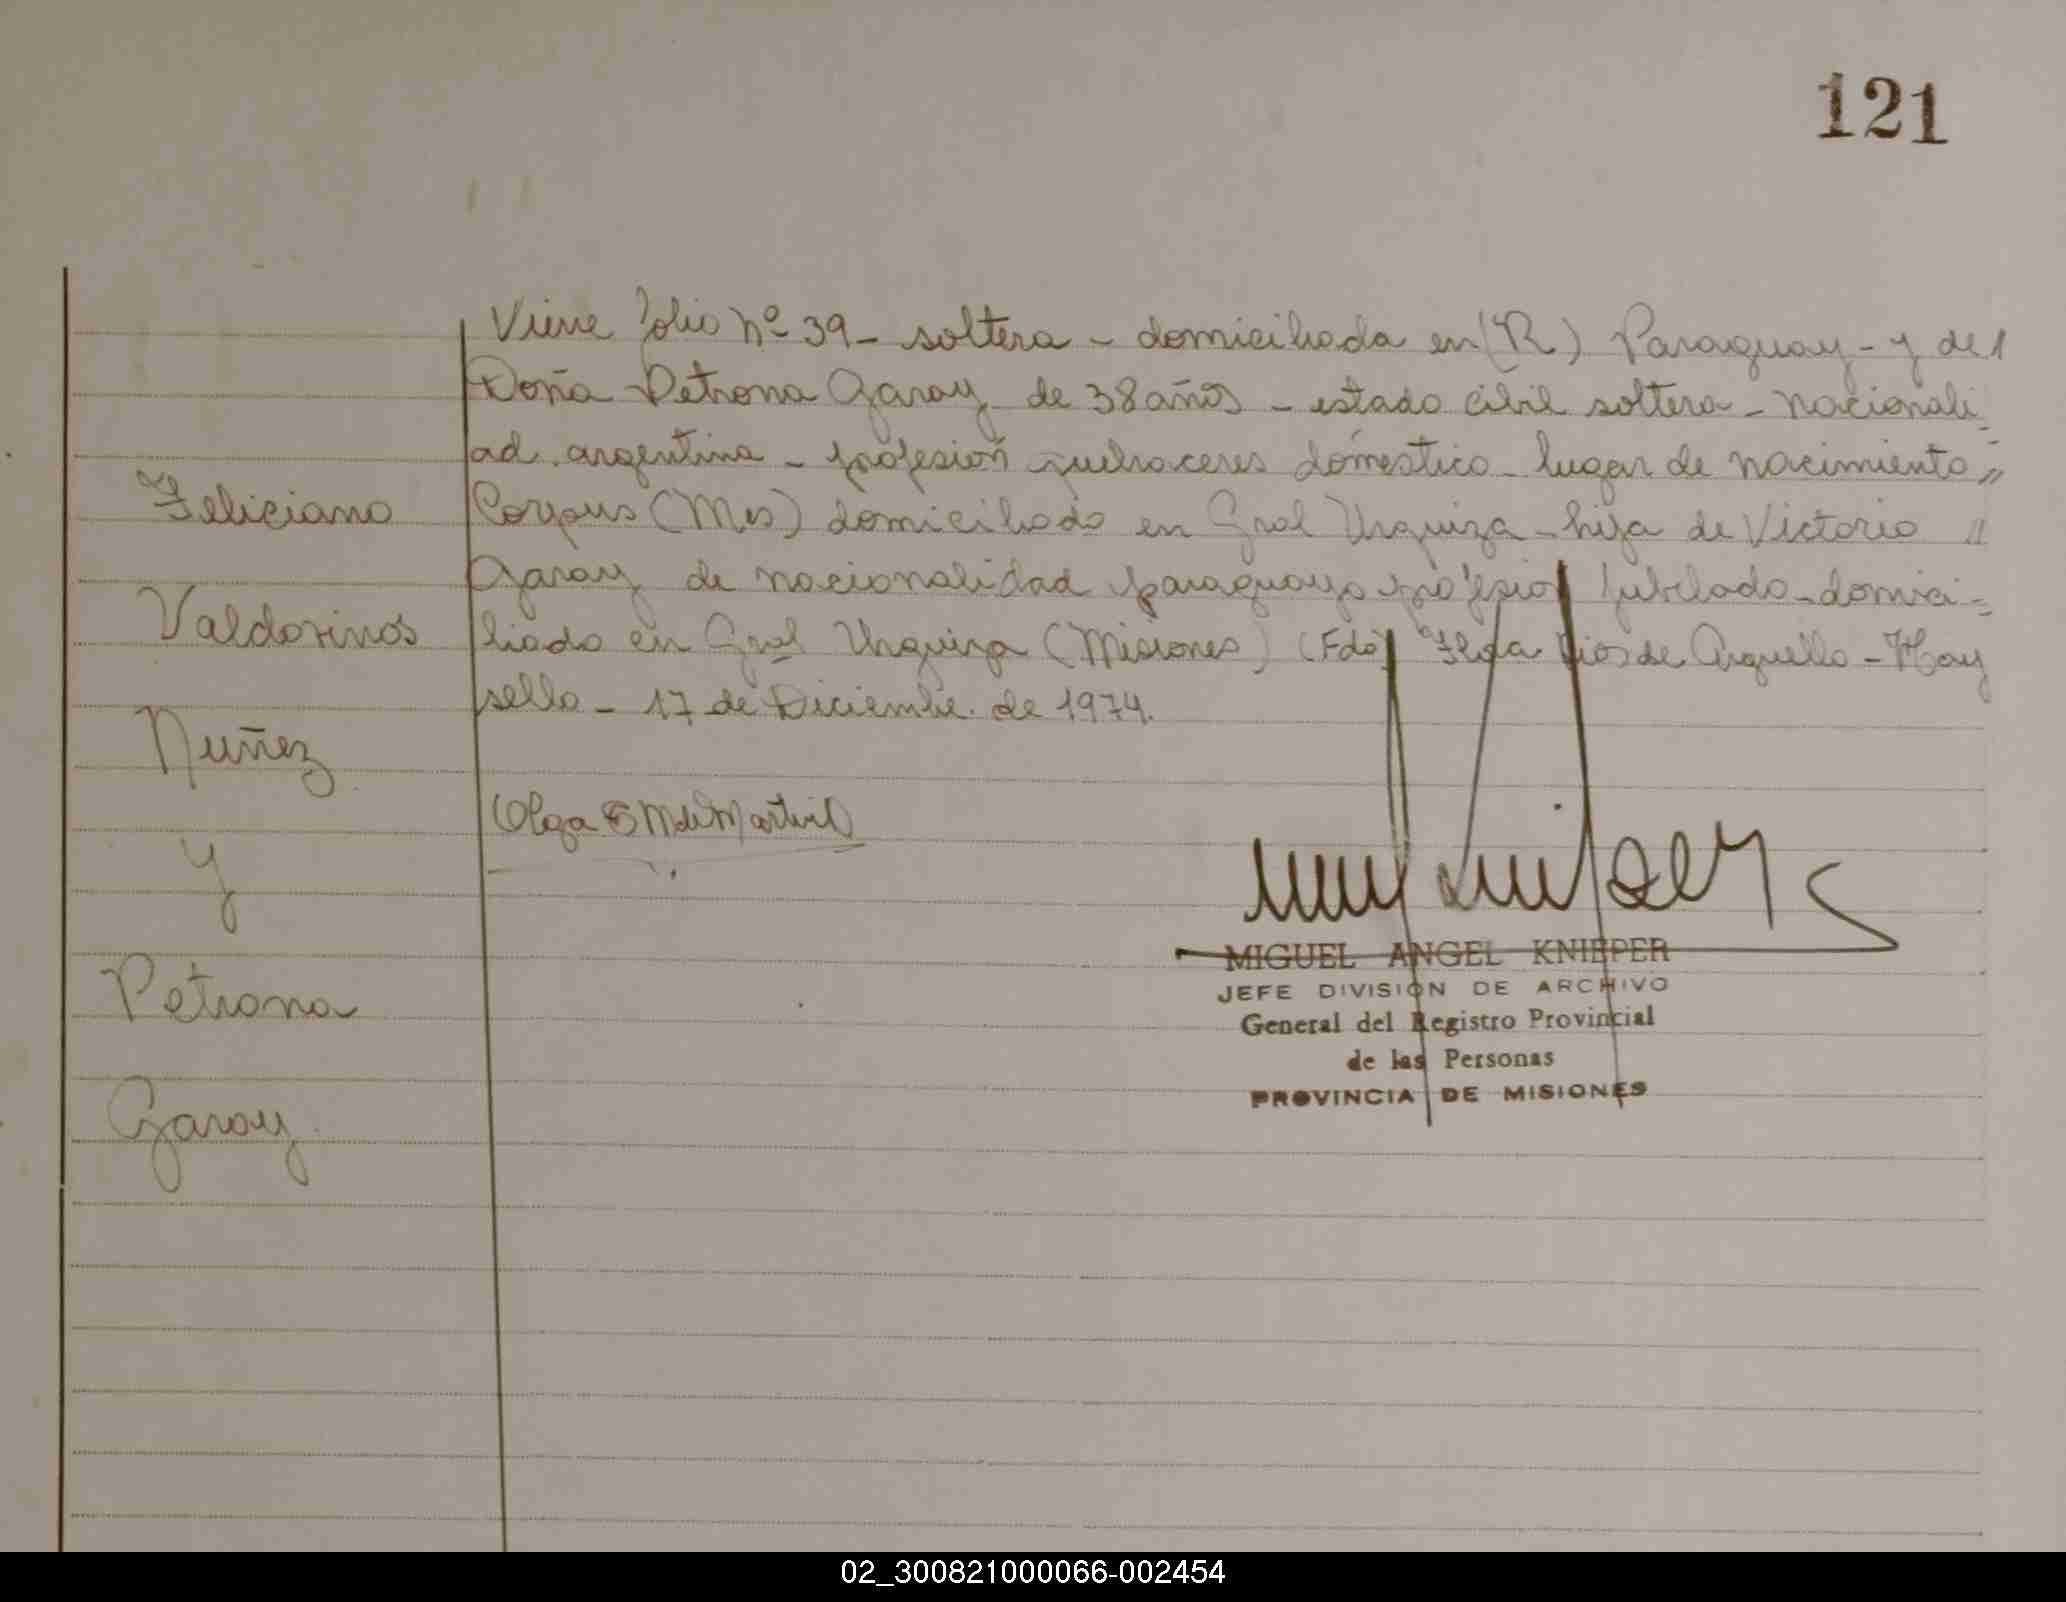 121
Viene folio nº 39 - soltera - domiciliada en (R) Paraguay - y de
Doña Petrona Garay de 38 años - estado civil soltera - nacionali
ad argentina - profesión quehaceres doméstico - lugar de nacimiento "
Corpus (Mns) domiciliado en Gral Urquiza - hija de Victorio "
Garay de nacionalidad paraguayo profesion jubilado - domici -
liado en Gral Urquiza (Misiones) (Fdo) Ilda Rios de Arguello - Hay
sello - 17 de Diciembre de 1974.
Feliciano
Valdovinos
Nuñez
y
Petrona
Garay
Olga
MIGUEL ANGEL KNIEPER
JEFE DIVISION DE ARCHIVO
General del Registro Provincial
de las Personas
PROVINCIA DE MISIONES
02_300821000066-002454